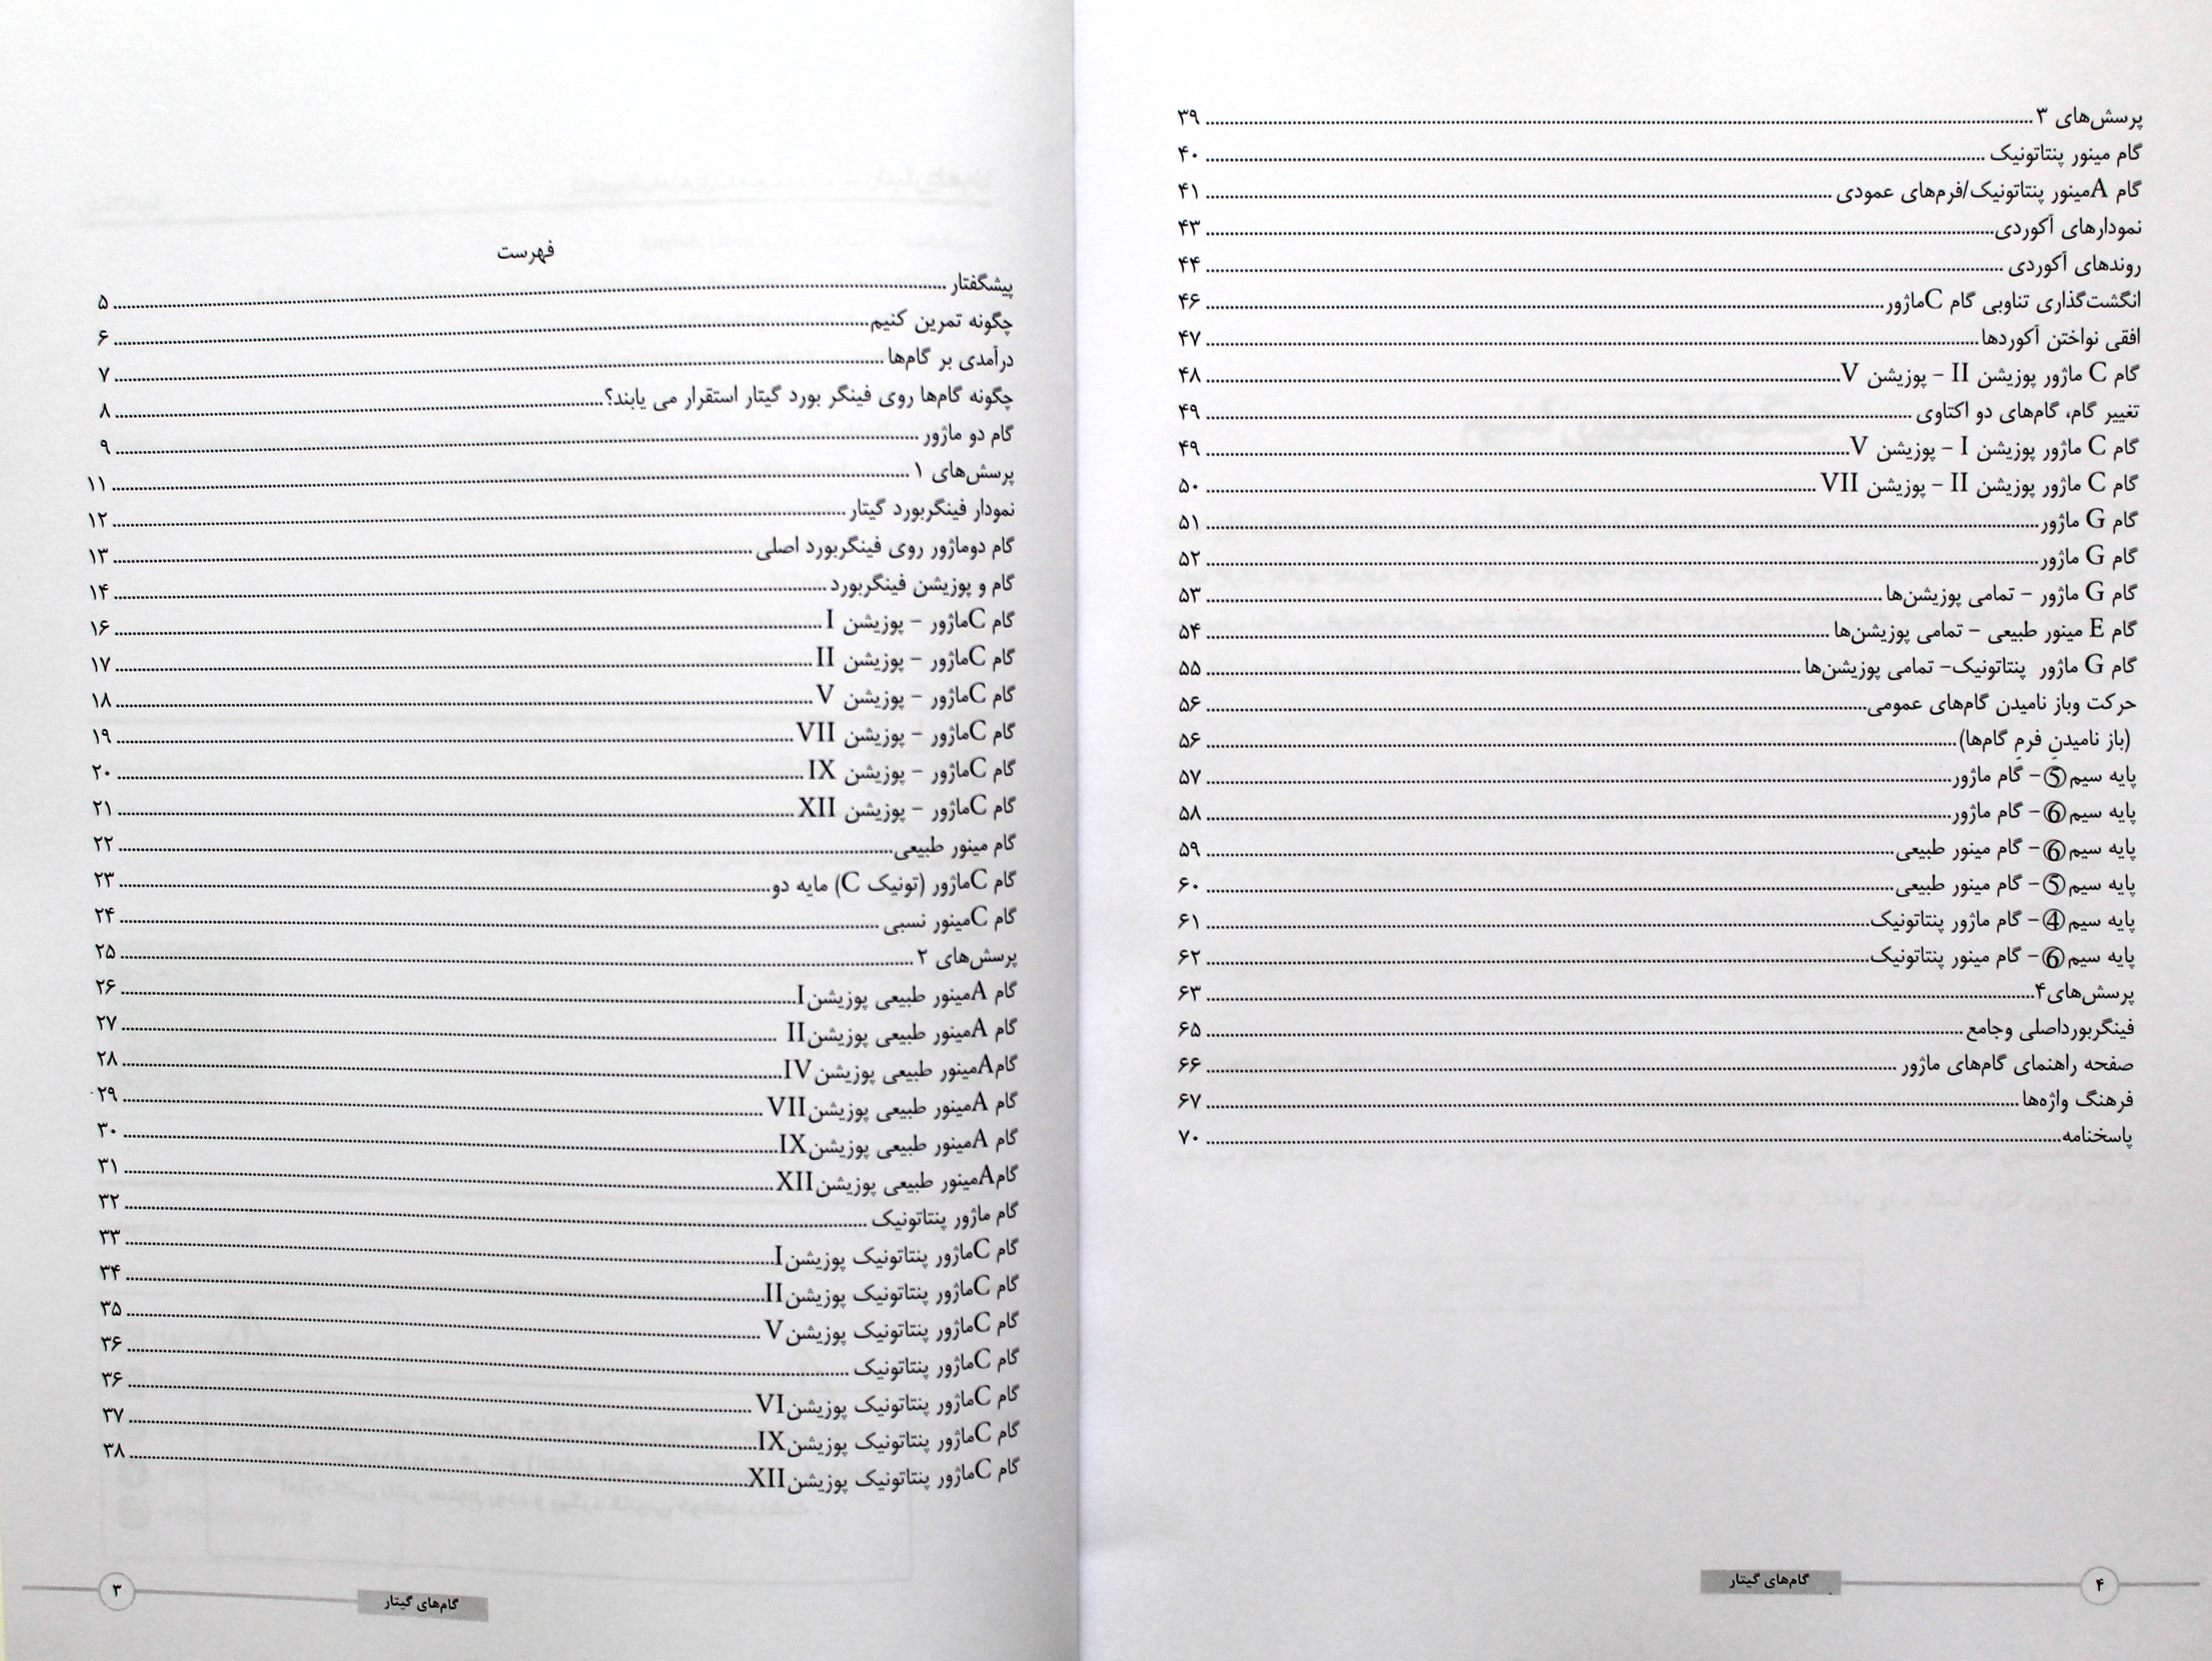 فهرست
پیشگفتار ۵
چگونه تمرین کنیم ۶
درآمدی بر گام‌ها ۷
چگونه گام‌ها روی فینگر بورد گیتار استقرار می یابند؟ ۸
گام دو ماژور ۹
پرسش‌های ۱ ۱۱
نمودار فینگربورد گیتار ۱۲
گام دوماژور روی فینگربورد اصلی ۱۳
گام و پوزیشن فینگربورد ۱۴
گام Cماژور – پوزیشن I ۱۶
گام Cماژور – پوزیشن II ۱۷
گام Cماژور – پوزیشن V ۱۸
گام Cماژور – پوزیشن VII ۱۹
گام Cماژور – پوزیشن IX ۲۰
گام Cماژور – پوزیشن XII ۲۱
گام مینور طبیعی ۲۲
گام Cماژور (تونیک C) مایه دو ۲۳
گام Cمینور نسبی ۲۴
پرسش‌های ۲ ۲۵
گام Aمینور طبیعی پوزیشنI ۲۶
گام Aمینور طبیعی پوزیشنII ۲۷
گامAمینور طبیعی پوزیشنIV ۲۸
گام Aمینور طبیعی پوزیشنVII ۲۹
گام Aمینور طبیعی پوزیشنIX ۳۰
گامAمینور طبیعی پوزیشنXII ۳۱
گام ماژور پنتاتونیک ۳۲
گام Cماژور پنتاتونیک پوزیشنI ۳۳
گام Cماژور پنتاتونیک پوزیشنII ۳۴
گام Cماژور پنتاتونیک پوزیشنV ۳۵
گام Cماژور پنتاتونیک ۳۶
گام Cماژور پنتاتونیک پوزیشنVI ۳۶
گام Cماژور پنتاتونیک پوزیشنIX ۳۷
گام Cماژور پنتاتونیک پوزیشنXII ۳۸
۳
گام‌های گیتار
پرسش‌های ۳ ۳۹
گام مینور پنتاتونیک ۴۰
گام Aمینور پنتاتونیک/فرم‌های عمودی ۴۱
نمودارهای آکوردی ۴۳
روندهای آکوردی ۴۴
انگشت‌گذاری تناوبی گام Cماژور ۴۶
افقی نواختن آکوردها ۴۷
گام C ماژور پوزیشن II – پوزیشن V ۴۸
تغییر گام، گام‌های دو اکتاوی ۴۹
گام C ماژور پوزیشن I – پوزیشن V ۴۹
گام C ماژور پوزیشن II – پوزیشن VII ۵۰
گام G ماژور ۵۱
گام G ماژور ۵۲
گام G ماژور – تمامی پوزیشن‌ها ۵۳
گام E مینور طبیعی – تمامی پوزیشن‌ها ۵۴
گام G ماژور پنتاتونیک– تمامی پوزیشن‌ها ۵۵
حرکت وباز نامیدن گام‌های عمومی ۵۶
(باز نامیدنِ فرمِ گام‌ها) ۵۶
پایه سیم⑤– گام ماژور ۵۷
پایه سیم⑥– گام ماژور ۵۸
پایه سیم⑥– گام مینور طبیعی ۵۹
پایه سیم⑤– گام مینور طبیعی ۶۰
پایه سیم④– گام ماژور پنتاتونیک ۶۱
پایه سیم⑥– گام مینور پنتاتونیک ۶۲
پرسش‌های۴ ۶۳
فینگربورداصلی وجامع ۶۵
صفحه راهنمای گام‌های ماژور ۶۶
فرهنگ واژه‌ها ۶۷
پاسخنامه ۷۰
گام‌های گیتار
۴